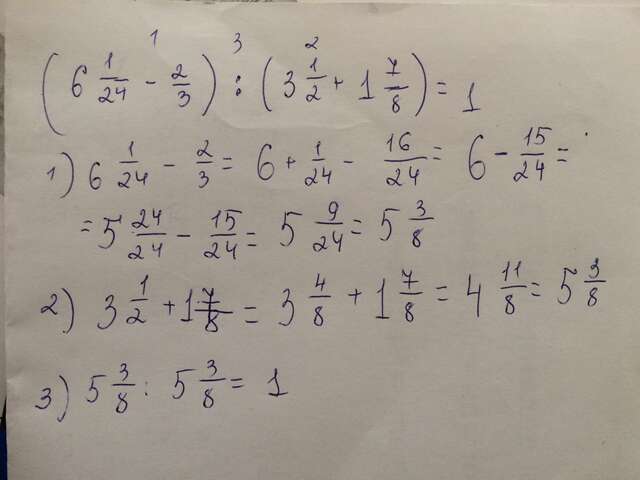 1 3 2
(6 1/24 - 2/3) : (3 1/2 + 1 7/8) = 1
1) 6 1/24 - 2/3 = 6 + 1/24 - 16/24 = 6 - 15/24 =
= 5 24/24 - 15/24 = 5 9/24 = 5 3/8
2) 3 1/2 + 1 7/8 = 3 4/8 + 1 7/8 = 4 11/8 = 5 3/8
3) 5 3/8 : 5 3/8 = 1